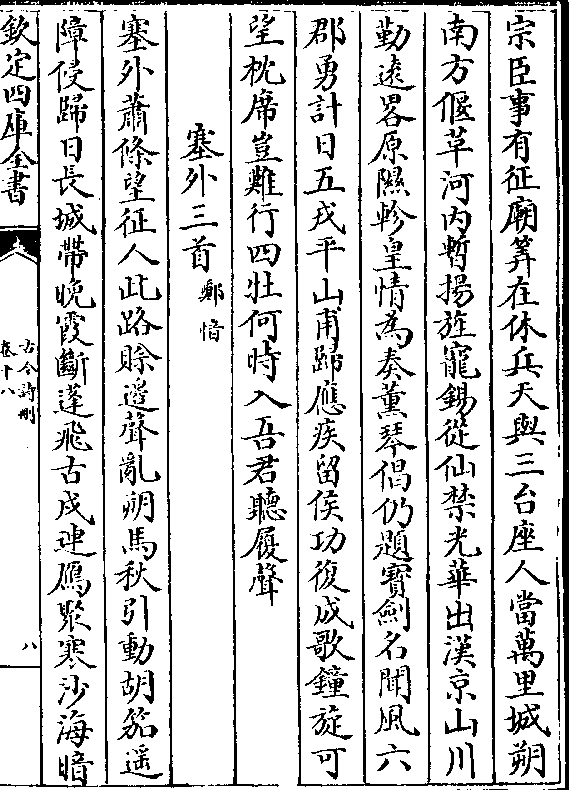 宗臣事有征廟筭在休兵天與三台座人當萬里城朔
南方偃草河内暫揚旌寵錫從仙禁光華出漢京山川
勤遠畧原隰軫皇情為奏薰琴倡仍題寳劎名聞風六
郡勇計日五戎平山甫歸應疾留侯功復成歌鐘旋可
望枕席豈難行四牡何時入吾君聽履聲
塞外三首 鄭愔
塞外蕭條望征人此路賖邉聲亂朔馬秋引動胡笳遥
障侵歸日長城帶晚霞斷蓬飛古戍連鴈聚寒沙海暗
欽定四庫全書
古今詩刪
卷十八
八